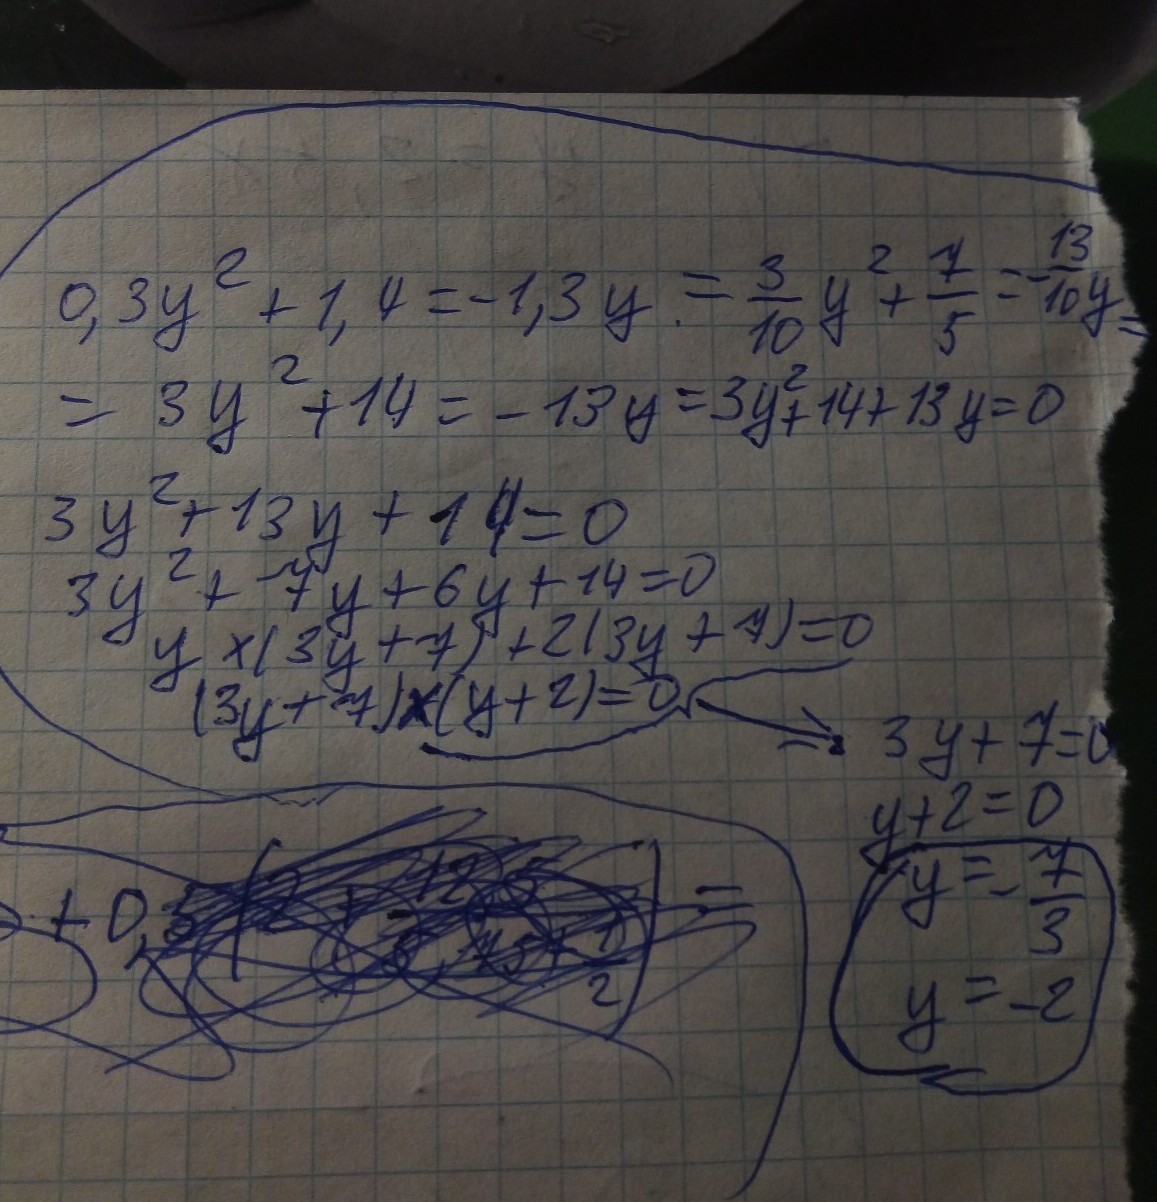 0,3y² + 1,4 = -1,3y = 3/10 y² + 7/5 = -13/10 y =
= 3y² + 14 = -13y = 3y² + 14 + 13y = 0
3y² + 13y + 14 = 0
3y² + 7y + 6y + 14 = 0
y × (3y + 7) + 2(3y + 7) = 0
(3y + 7) × (y + 2) = 0 ⇒ 3y + 7 = 0
y + 2 = 0
y = -7/3
y = -2
+ 0,
=